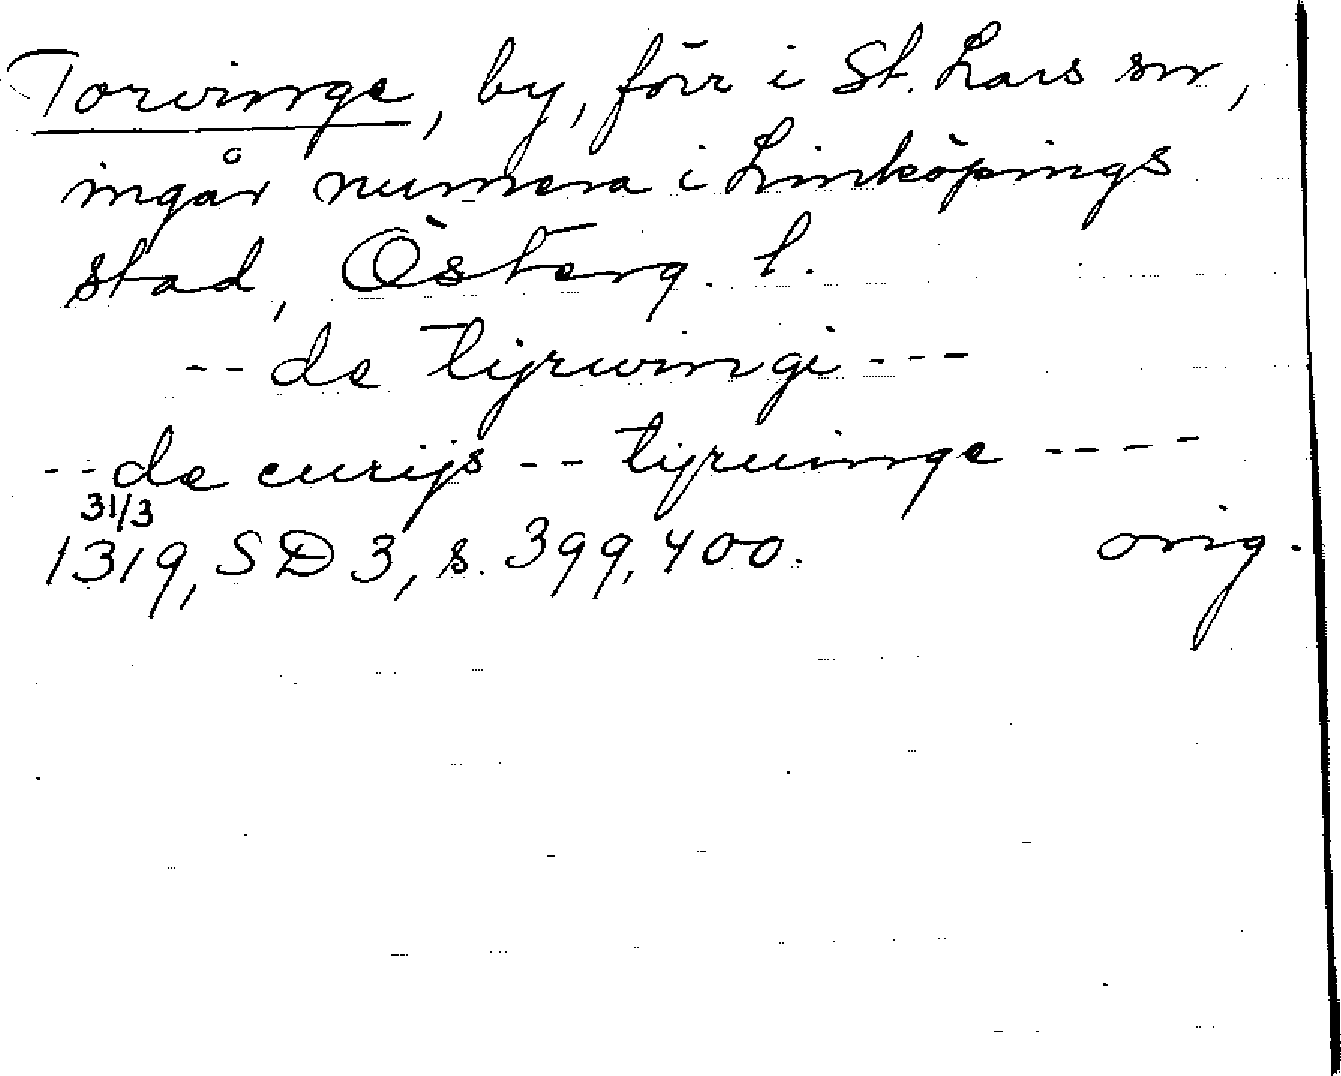 Torvinge, by, förr i St. Lars sn,
ingår numera i Linköpings
stad, Österg. l.
-- de tijrwingi ---
-- de curijs -- tijruinge ----
31/3
1319, SD 3, s. 399, 400. orig.